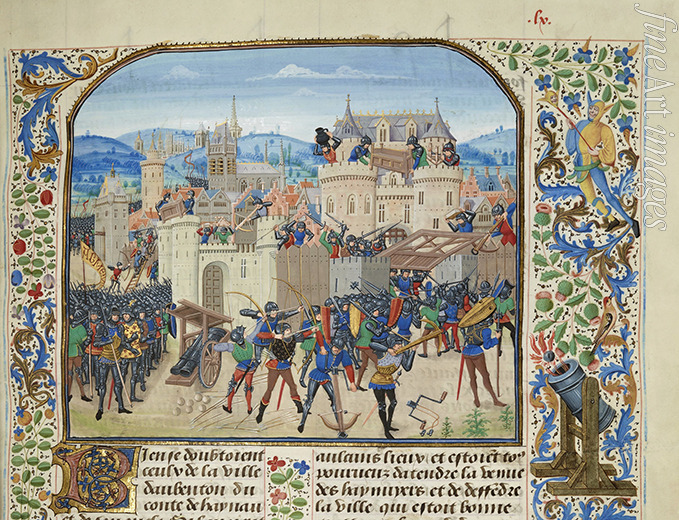 lx.
fineArtimages
Bien se doubtoient
ceulx de la ville
daubenton du
conte de haynau
pourueuz datendre la venue
des haynuiers et de deffēdre
la ville qui estoit bonne